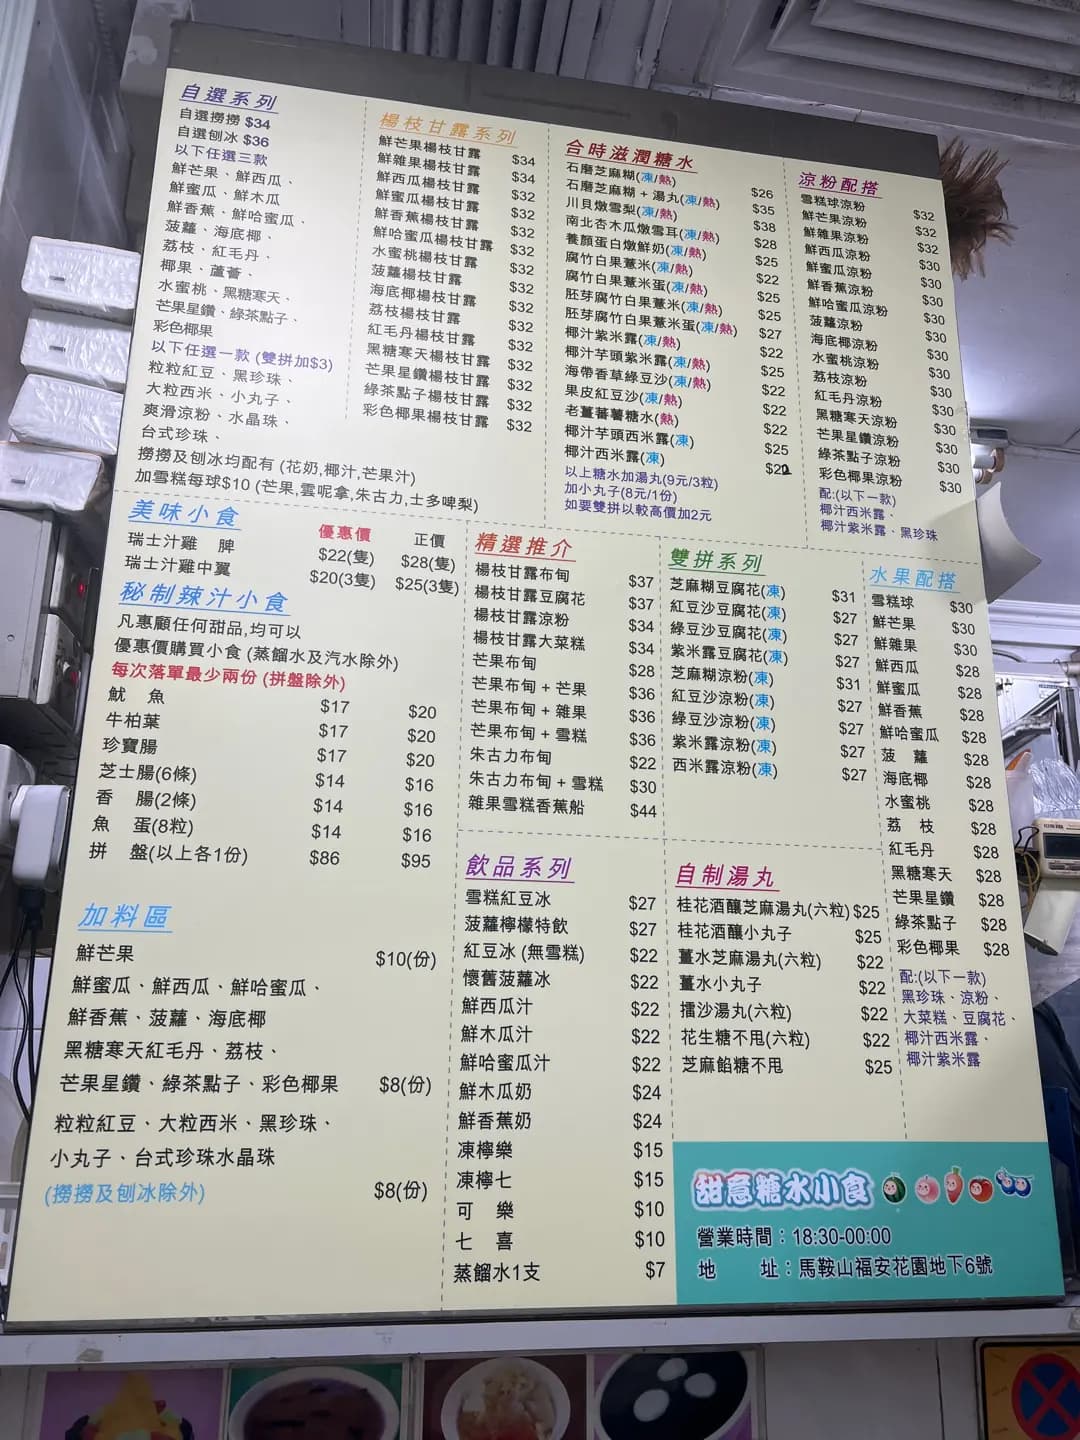 自選系列
自選撈撈 $34
自選刨冰 $36
以下任選三款
鮮芒果、鮮西瓜、
鮮蜜瓜、鮮木瓜
鮮香蕉、鮮哈蜜瓜、
菠蘿、海底椰、
荔枝、紅毛丹、
椰果、蘆薈、
水蜜桃、黑糖寒天、
芒果星鑽、綠茶點子、
彩色椰果
以下任選一款 (雙拼加$3)
粒粒紅豆、黑珍珠、
大粒西米、小丸子、
爽滑涼粉、水晶珠、
台式珍珠、
撈撈及刨冰均配有 (花奶,椰汁,芒果汁)
加雪糕每球$10 (芒果,雲呢拿,朱古力,士多啤梨)
楊枝甘露系列
鮮芒果楊枝甘露 $34
鮮雜果楊枝甘露 $34
鮮西瓜楊枝甘露 $32
鮮蜜瓜楊枝甘露 $32
鮮香蕉楊枝甘露 $32
鮮哈蜜瓜楊枝甘露 $32
水蜜桃楊枝甘露 $32
菠蘿楊枝甘露 $32
海底椰楊枝甘露 $32
荔枝楊枝甘露 $32
紅毛丹楊枝甘露 $32
黑糖寒天楊枝甘露 $32
芒果星鑽楊枝甘露 $32
綠茶點子楊枝甘露 $32
彩色椰果楊枝甘露 $32
合時滋潤糖水
石磨芝麻糊(凍/熱) $26
石磨芝麻糊 + 湯丸(凍/熱) $35
川貝燉雪梨(凍/熱) $38
南北杏木瓜燉雪耳(凍/熱) $28
養顏蛋白燉鮮奶(凍/熱) $25
腐竹白果薏米(凍/熱) $22
腐竹白果薏米蛋(凍/熱) $25
胚芽腐竹白果薏米(凍/熱) $25
胚芽腐竹白果薏米蛋(凍/熱) $27
椰汁紫米露(凍/熱) $22
椰汁芋頭紫米露(凍/熱) $25
海帶香草綠豆沙(凍/熱) $22
果皮紅豆沙(凍/熱) $22
老薑蕃薯糖水(熱) $22
椰汁芋頭西米露(凍) $25
椰汁西米露(凍) $22
以上糖水加湯丸(9元/3粒)
加小丸子(8元/1份)
如要雙拼以較高價加2元
涼粉配搭
雪糕球涼粉 $32
鮮芒果涼粉 $32
鮮雜果涼粉 $32
鮮西瓜涼粉 $30
鮮蜜瓜涼粉 $30
鮮香蕉涼粉 $30
鮮哈蜜瓜涼粉 $30
菠蘿涼粉 $30
海底椰涼粉 $30
水蜜桃涼粉 $30
荔枝涼粉 $30
紅毛丹涼粉 $30
黑糖寒天涼粉 $30
芒果星鑽涼粉 $30
綠茶點子涼粉 $30
彩色椰果涼粉 $30
配:(以下一款)
椰汁西米露、
椰汁紫米露、黑珍珠
美味小食 優惠價 正價
瑞士汁雞 脾 $22(隻) $28(隻)
瑞士汁雞中翼 $20(3隻) $25(3隻)
秘制辣汁小食
凡惠顧任何甜品,均可以
優惠價購買小食 (蒸餾水及汽水除外)
每次落單最少兩份 (拼盤除外)
魷 魚 $17 $20
牛柏葉 $17 $20
珍寶腸 $17 $20
芝士腸(6條) $14 $16
香 腸(2條) $14 $16
魚 蛋(8粒) $14 $16
拼 盤(以上各1份) $86 $95
加料區
鮮芒果 $10(份)
鮮蜜瓜、鮮西瓜、鮮哈蜜瓜、
鮮香蕉、菠蘿、海底椰
黑糖寒天紅毛丹、荔枝、
芒果星鑽、綠茶點子、彩色椰果 $8(份)
粒粒紅豆、大粒西米、黑珍珠、
小丸子、台式珍珠水晶珠
(撈撈及刨冰除外) $8(份)
精選推介
楊枝甘露布甸 $37
楊枝甘露豆腐花 $37
楊枝甘露涼粉 $34
楊枝甘露大菜糕 $34
芒果布甸 $28
芒果布甸 + 芒果 $36
芒果布甸 + 雜果 $36
芒果布甸 + 雪糕 $36
朱古力布甸 $22
朱古力布甸 + 雪糕 $30
雜果雪糕香蕉船 $44
雙拼系列
芝麻糊豆腐花(凍) $31
紅豆沙豆腐花(凍) $27
綠豆沙豆腐花(凍) $27
紫米露豆腐花(凍) $27
芝麻糊涼粉(凍) $31
紅豆沙涼粉(凍) $27
綠豆沙涼粉(凍) $27
紫米露涼粉(凍) $27
西米露涼粉(凍) $27
水果配搭
雪糕球 $30
鮮芒果 $30
鮮雜果 $30
鮮西瓜 $28
鮮蜜瓜 $28
鮮香蕉 $28
鮮哈蜜瓜 $28
菠 蘿 $28
海底椰 $28
水蜜桃 $28
荔 枝 $28
紅毛丹 $28
黑糖寒天 $28
芒果星鑽 $28
綠茶點子 $28
彩色椰果 $28
配:(以下一款)
黑珍珠、涼粉、
大菜糕、豆腐花、
椰汁西米露、
椰汁紫米露
飲品系列
雪糕紅豆冰 $27
菠蘿檸檬特飲 $27
紅豆冰 (無雪糕) $22
懷舊菠蘿冰 $22
鮮西瓜汁 $22
鮮木瓜汁 $22
鮮哈蜜瓜汁 $22
鮮木瓜奶 $24
鮮香蕉奶 $24
凍檸樂 $15
凍檸七 $15
可 樂 $10
七 喜 $10
蒸餾水1支 $7
自制湯丸
桂花酒釀芝麻湯丸(六粒) $25
桂花酒釀小丸子 $25
薑水芝麻湯丸(六粒) $22
薑水小丸子 $22
擂沙湯丸(六粒) $22
花生糖不甩(六粒) $22
芝麻餡糖不甩 $25
甜意糖水小食
營業時間：18:30-00:00
地 址：馬鞍山福安花園地下6號